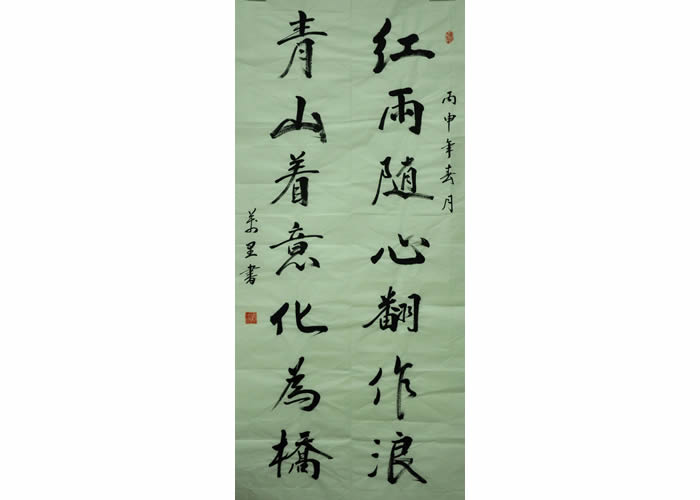 丙申年春月
红雨随心翻作浪
青山着意化為橋
萬里書